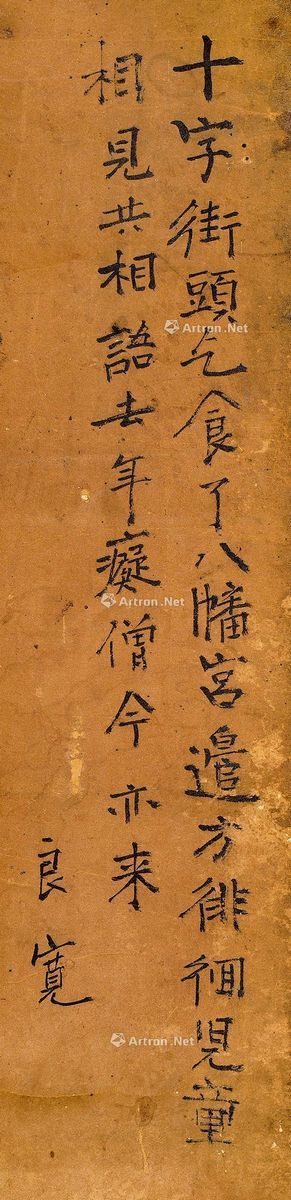 十字街頭乞食了八幡宮邉方徘徊児童
相見共相語去年癡僧今亦来
良寛
Artron.Net
Artron.Net
Artron.Net